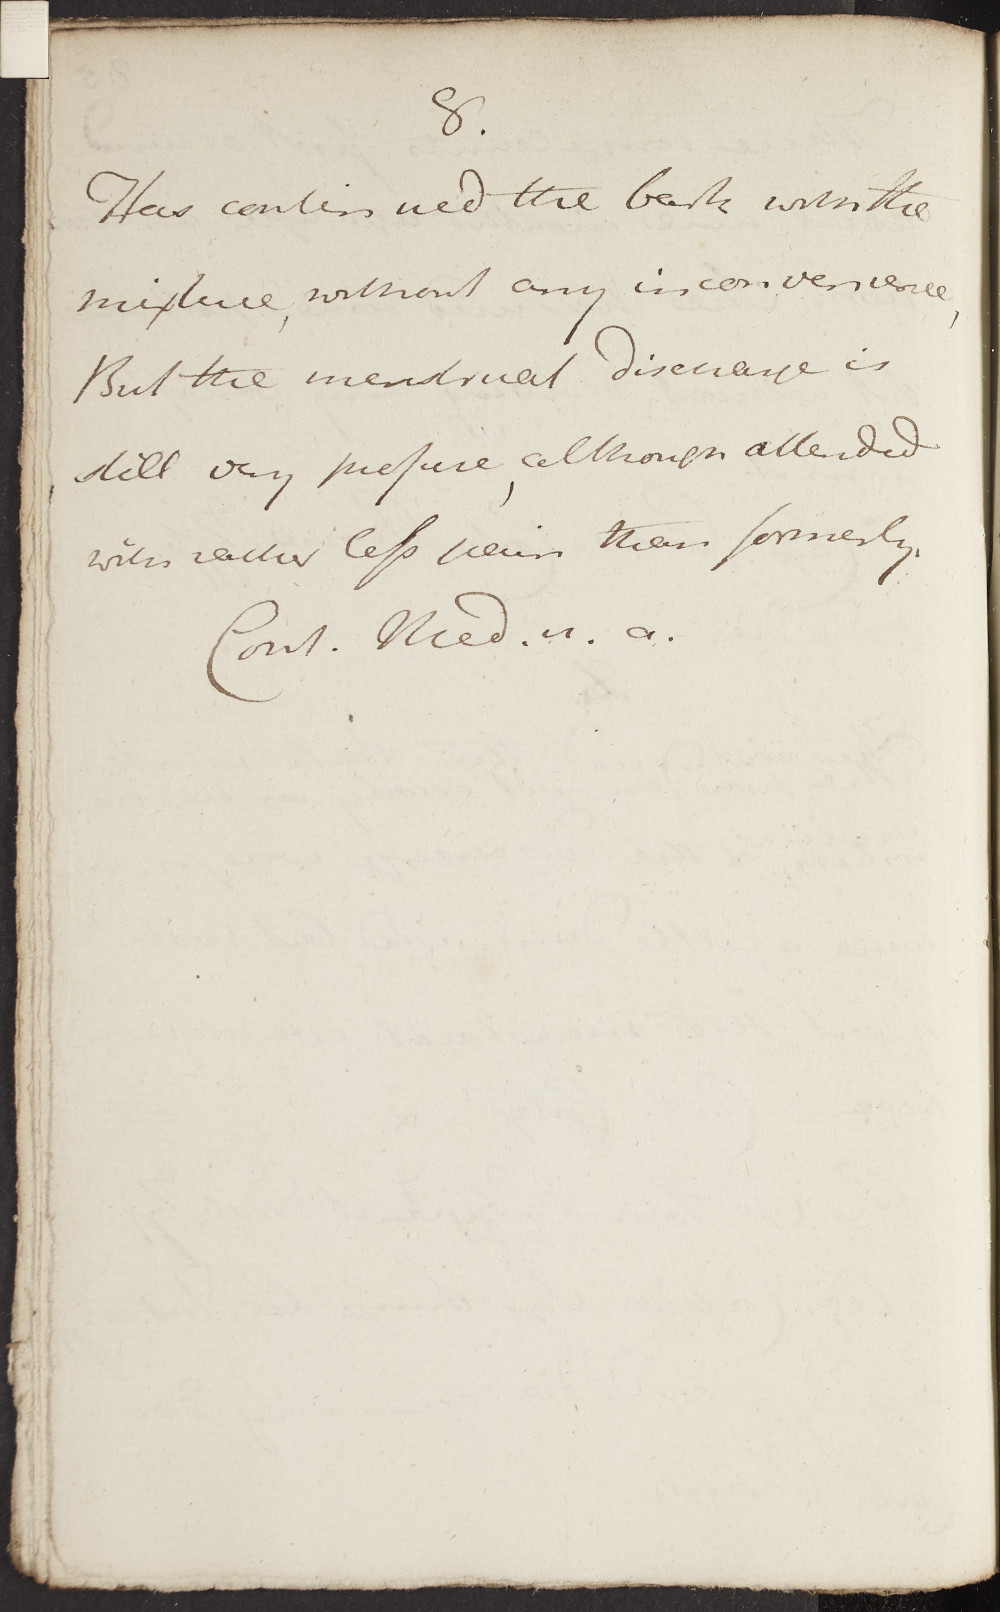 8.
Has continued the bark with the
mixture, without any inconvenience,
But the menstrual discharge is
still very profuse, although attended
with rather less pain than formerly.
Cont. Med. u. a.